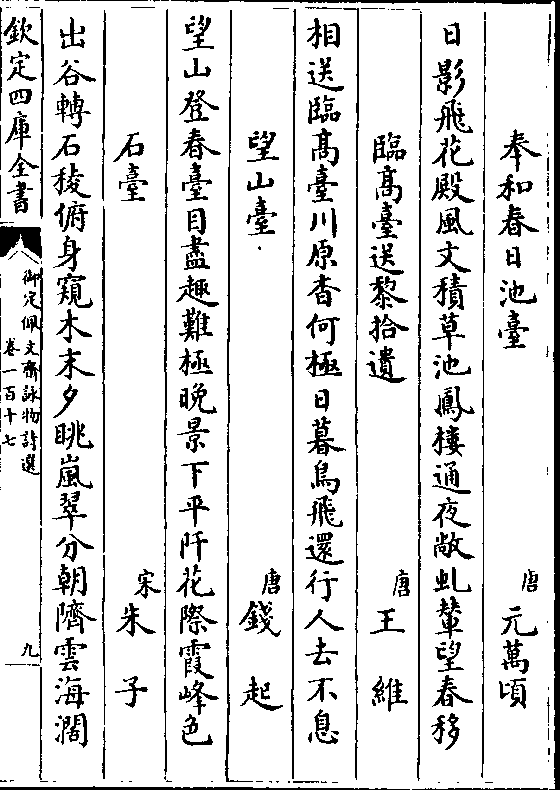 奉和春日池臺　唐　元萬頃
日影飛花殿風文積草池鳳樓通夜敞虬輦望春移
臨髙臺送黎拾遺　唐　王維
相送臨髙臺川原杳何極日暮鳥飛還行人去不息
望山臺　唐　錢起
望山登春臺目盡趣難極晩景下平阡花際霞峰色
石臺　宋　朱子
出谷轉石稜俯身窺木末夕眺嵐翠分朝隮雲海濶
欽定四庫全書
御定佩文齋詠物詩選
卷一百十七
九